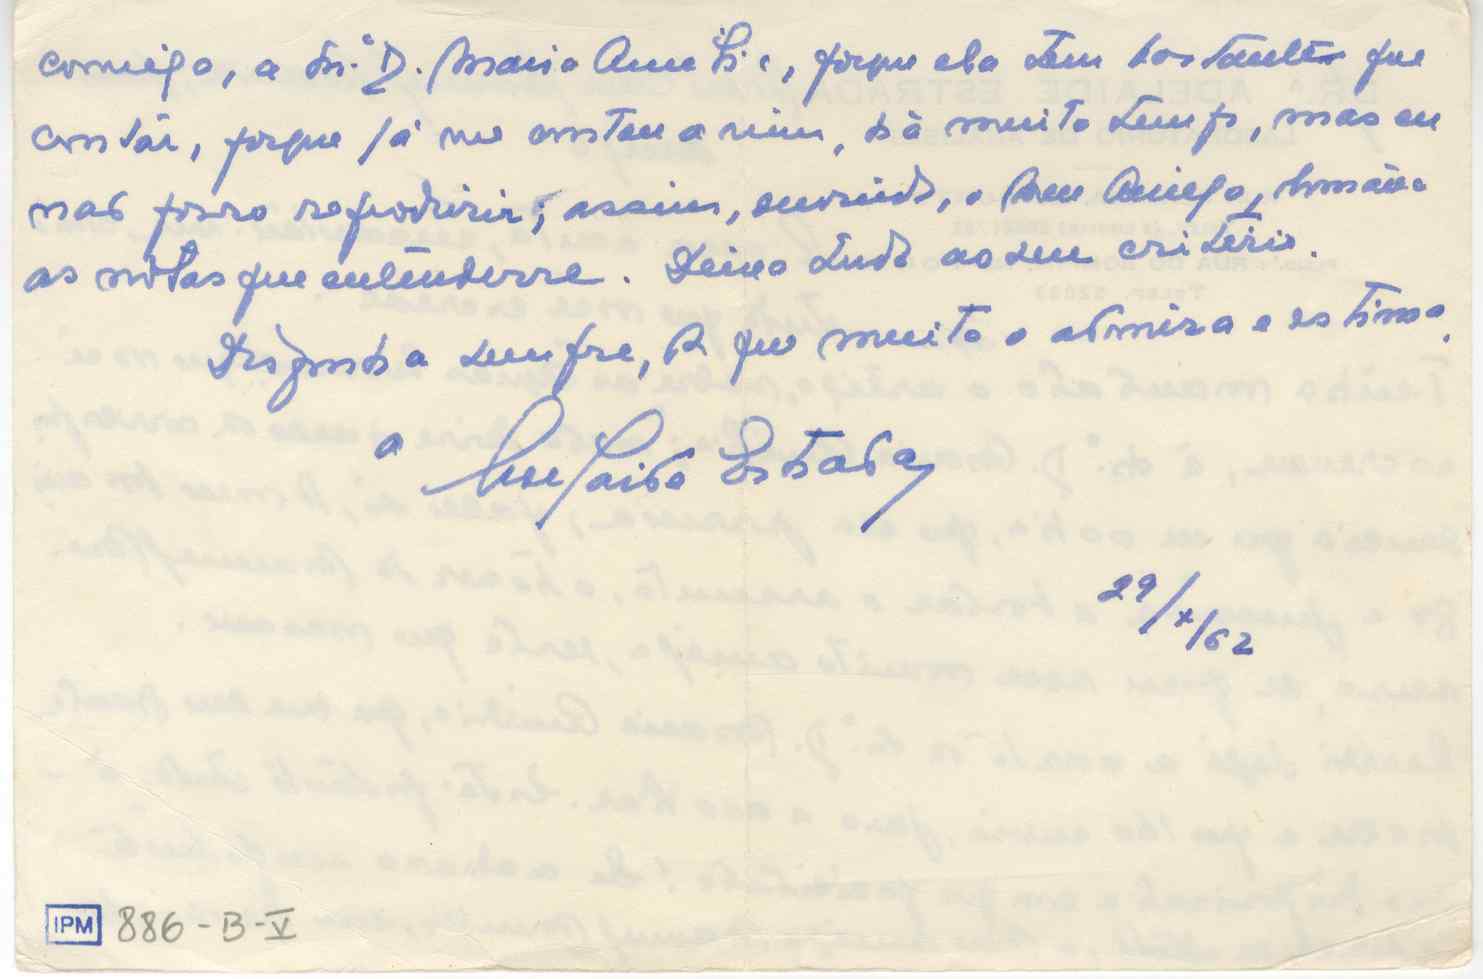 comigo, a Sr.ª D. Maria Amélia, porque ela tem bastante que
contár, porque já me contou a mim, há muito tempo, mas eu
não posso reproduzir; assim, ouvindo, o bom Amigo, tomára
as nótas que entendesse. Deixo tudo ao seu critério.
Disponha sempre, da que muito o admira e estima.
a Adelaide Estrada
29/X/62
IPM 886-B-V